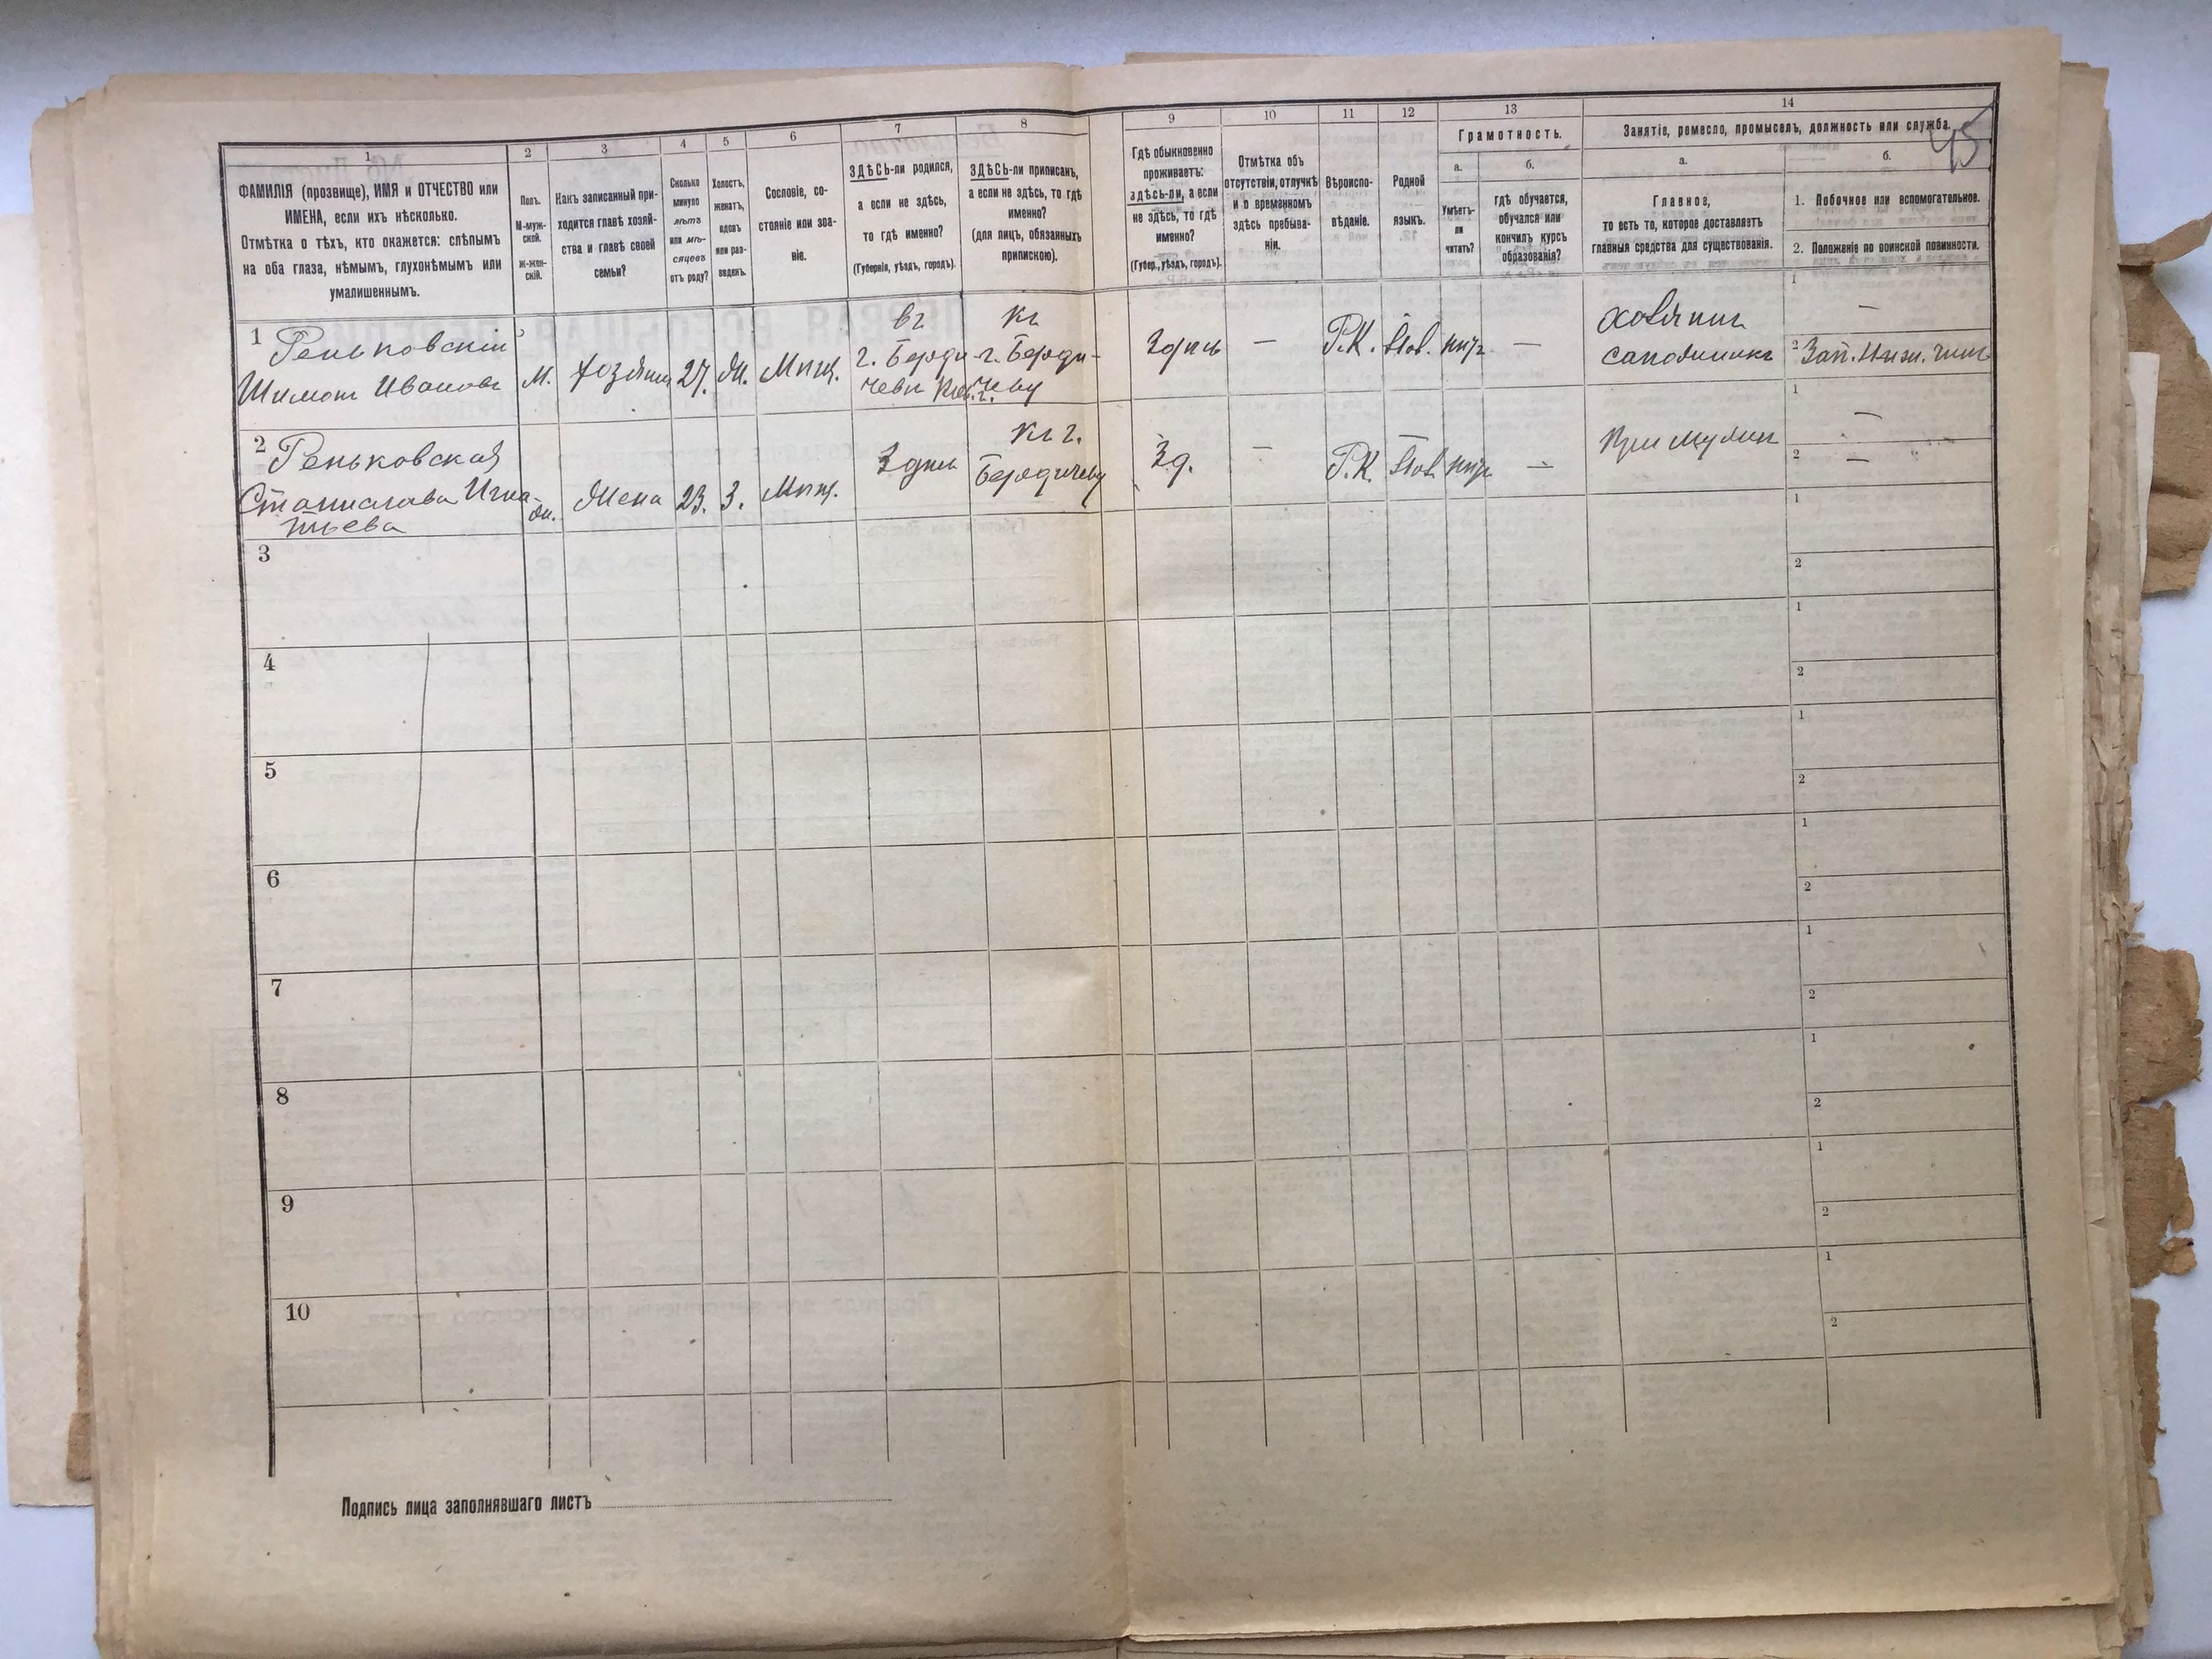 45
1
ФАМИЛІЯ (прозвище), ИМЯ и ОТЧЕСТВО или
ИМЕНА, если ихъ нѣсколько.
Отмѣтка о тѣхъ, кто окажется: слѣпымъ
на оба глаза, нѣмымъ, глухонѣмымъ или
умалишеннымъ.
2
Полъ.
М-муж-
ской.
ж-жен-
скій.
3
Какъ записанный при-
ходится главѣ хозяй-
ства и главѣ своей
семьи?
4
Сколько
минуло
лѣтъ
или мѣ-
сяцевъ
отъ роду?
5
Холостъ,
женатъ,
вдовъ
или раз-
веденъ.
6
Сословіе, со-
стояніе или зва-
ніе.
7
ЗДѢСЬ-ли родился,
а если не здѣсь,
то гдѣ именно?
(Губернія, уѣздъ, городъ).
8
ЗДѢСЬ-ли приписанъ,
а если не здѣсь, то гдѣ
именно?
(для лицъ, обязанныхъ
припискою).
9
Гдѣ обыкновенно
проживаетъ:
здѣсь-ли, а если
не здѣсь, то гдѣ
именно?
(Губер., уѣздъ, городъ).
10
Отмѣтка объ
отсутствіи, отлучкѣ
и о временномъ
здѣсь пребыва-
ніи.
11
Вѣроиспо-
вѣданіе.
12
Родной
языкъ.
13
Грамотность.
а.
Умѣетъ-
ли
читать?
б.
гдѣ обучается,
обучался или
кончилъ курсъ
образованія?
14
Занятіе, ремесло, промыселъ, должность или служба.
а.
Главное,
то есть то, которое доставляетъ
главныя средства для существованія.
б.
1. Побочное или вспомогательное.
2. Положеніе по воинской повинности.
1
Реньковскій
Шимонъ Ивановъ
М.
хозяинъ
27.
Ж.
Мѣщ.
въ
г. Берди-
чевѣ
къ
г. Берди-
чеву
Здѣсь
—
Р.К.
Пол.
нѣтъ
—
хозяинъ
сапожникъ
1
—
2
Зап. Ниж. чинъ
2
Реньковская
Станислава Игна-
тьева
ж.
Жена
23.
З.
Мѣщ.
Здѣсь
къ г.
Бердичеву
Зд.
—
Р.К.
Пол.
нѣтъ
—
При мужѣ
1
—
2
—
3
1
2
4
1
2
5
1
2
6
1
2
7
1
2
8
1
2
9
1
2
10
1
2
Подпись лица заполнявшаго листъ